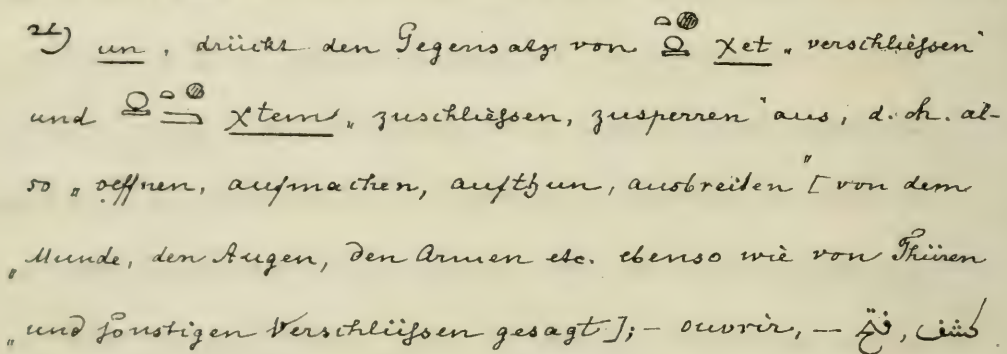 21) un, drückt den Gegensatz von 𓐍𓏏𓋨 χet „verschließen"
und 𓐍𓏏𓋨 χtem „zuschließen, zusperren" aus, d. h. al-
so „oeffnen, aufmachen, aufthun, ausbreiten" [von dem
„Munde, den Augen, den Armen etc. ebenso wie von Thüren
„und sonstigen Verschlüssen gesagt]; — ouvrir, — فتح, كشف